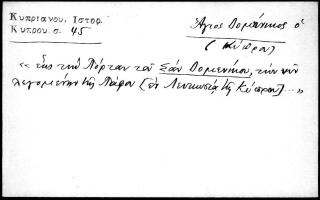 Κυπριανου, Ιστορ.
Κυπρου σ. 45
Άγιος Δομένικος ὁ
(Κύπρου)
« ἕως τὴν Πόρταν τοῦ Σὰν Δομενίκου, τὴν νῦν
λεγομένην τῆς Πάφου (ἐν Λευκωσίᾳ τῆς Κύπρου)... »